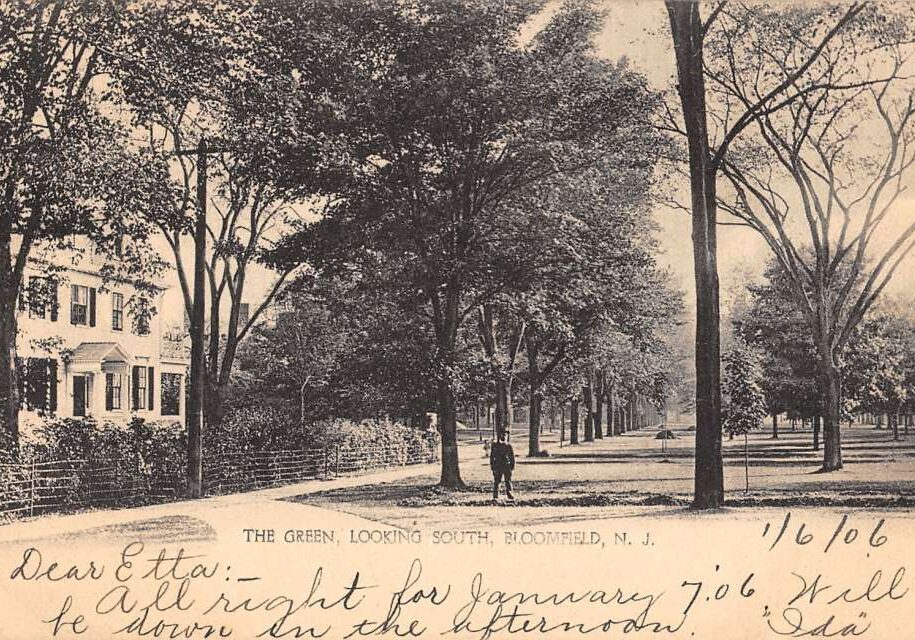 THE GREEN, LOOKING SOUTH, BLOOMFIELD, N. J.
1/6/06
Dear Etta:—
All right for January 7.'06 Will
be down in the afternoon. "Ida"